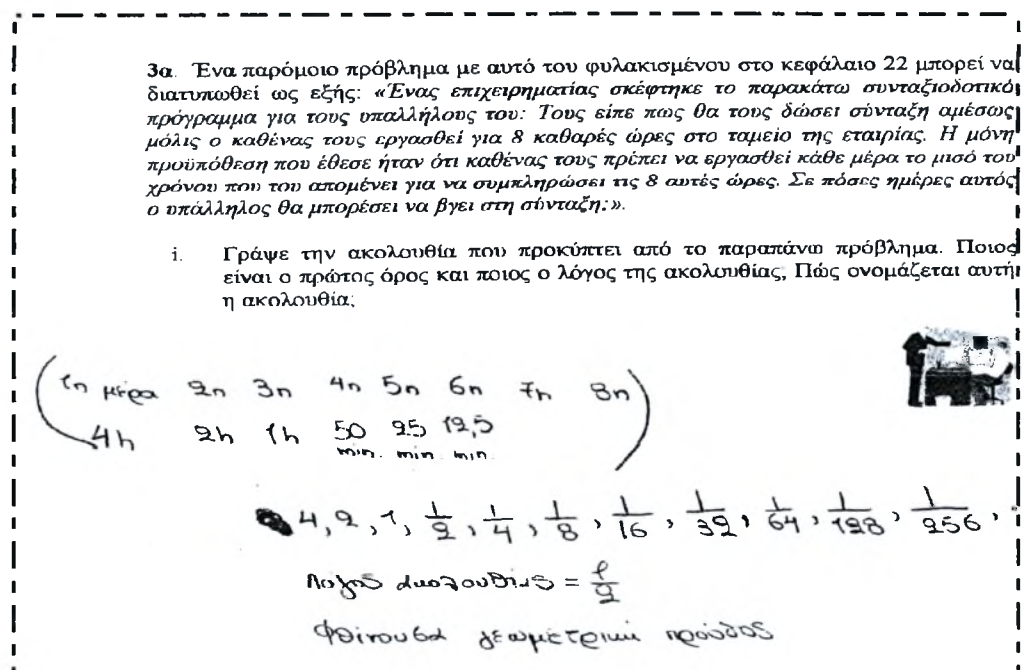 3α. Ένα παρόμοιο πρόβλημα με αυτό του φυλακισμένου στο κεφάλαιο 22 μπορεί να
διατυπωθεί ως εξής: «Ένας επιχειρηματίας σκέφτηκε το παρακάτω συνταξιοδοτικό
πρόγραμμα για τους υπαλλήλους του: Τους είπε πως θα τους δώσει σύνταξη αμέσως
μόλις ο καθένας τους εργασθεί για 8 καθαρές ώρες στο ταμείο της εταιρίας. Η μόνη
προϋπόθεση που έθεσε ήταν ότι καθένας τους πρέπει να εργασθεί κάθε μέρα το μισό του
χρόνου που του απομένει για να συμπληρώσει τις 8 αυτές ώρες. Σε πόσες ημέρες αυτός
ο υπάλληλος θα μπορέσει να βγει στη σύνταξη;».
i. Γράψε την ακολουθία που προκύπτει από το παραπάνω πρόβλημα. Ποιος
είναι ο πρώτος όρος και ποιος ο λόγος της ακολουθίας; Πώς ονομάζεται αυτή
η ακολουθία;
1η μέρα 2η 3η 4η 5η 6η 7η 8η
4h 2h 1h 50 25 12,5
min. min. min.
4, 2, 1, 1/2, 1/4, 1/8, 1/16, 1/32, 1/64, 1/128, 1/256,
Λόγος ακολουθίας = 1/2
Φθίνουσα γεωμετρική πρόοδος